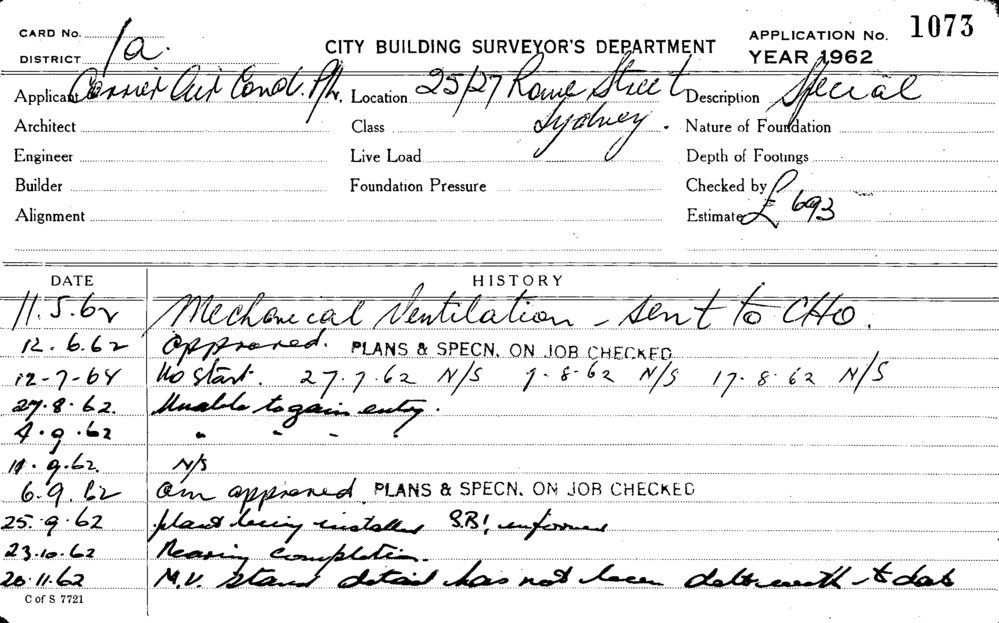 CARD No.
DISTRICT 1a.
CITY BUILDING SURVEYOR'S DEPARTMENT
APPLICATION No. 1073
YEAR 1962
Applicant Carrier Air Cond. P/L. Location 25/27 Rowe Street Sydney. Description Special
Architect Class Nature of Foundation
Engineer Live Load Depth of Footings
Builder Foundation Pressure Checked by
Alignment Estimate £693
DATE HISTORY
11.5.62 Mechanical Ventilation - sent to CHO.
12.6.62 approved. PLANS & SPECN. ON JOB CHECKED
12-7-64 No start. 27.7.62 N/S 7-8-62 N/S 17.8.62 N/S
27.8.62. Unable to gain entry.
4.9.62 " " - "
11.9.62. N/S
6.9.62 am approved PLANS & SPECN. ON JOB CHECKED
25.9.62 plant being installed SBI informed
23.10.62 Nearing completion.
20.11.62 M.V. detail has not been dealt with to date
C of S 7721